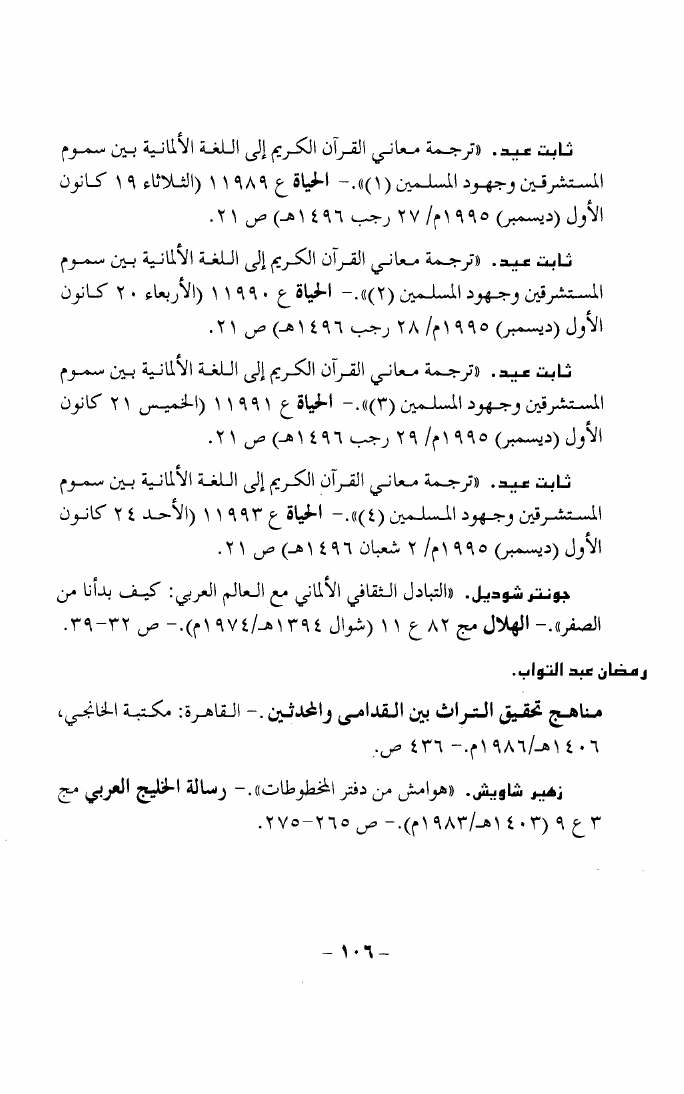 ثابت عيد. «ترجمة معاني القرآن الكريم إلى اللغة الألمانية بين سموم
المستشرقين وجهود المسلمين (١)».- الحياة ع ١١٩٨٩ (الثلاثاء ١٩ كانون
الأول (ديسمبر) ١٩٩٥م/ ٢٧ رجب ١٤٩٦هـ) ص ٢١.
ثابت عيد. «ترجمة معاني القرآن الكريم إلى اللغة الألمانية بين سموم
المستشرقين وجهود المسلمين (٢)».- الحياة ع ١١٩٩٠ (الأربعاء ٢٠ كانون
الأول (ديسمبر) ١٩٩٥م/ ٢٨ رجب ١٤٩٦هـ) ص ٢١.
ثابت عيد. «ترجمة معاني القرآن الكريم إلى اللغة الألمانية بين سموم
المستشرقين وجهود المسلمين (٣)».- الحياة ع ١١٩٩١ (الخميس ٢١ كانون
الأول (ديسمبر) ١٩٩٥م/ ٢٩ رجب ١٤٩٦هـ) ص ٢١.
ثابت عيد. «ترجمة معاني القرآن الكريم إلى اللغة الألمانية بين سموم
المستشرقين وجهود المسلمين (٤)».- الحياة ع ١١٩٩٣ (الأحد ٢٤ كانون
الأول (ديسمبر) ١٩٩٥م/ ٢ شعبان ١٤٩٦هـ) ص ٢١.
جونتر شوديل. «التبادل الثقافي الألماني مع العالم العربي: كيف بدأنا من
الصفر».- الهلال مج ٨٢ ع ١١ (شوال ١٣٩٤هـ/١٩٧٤م).- ص ٣٢-٣٩.
رمضان عبد التواب.
مناهج تحقيق التراث بين القدامى والمحدثين.- القاهرة: مكتبة الخانجي،
١٤٠٦هـ/١٩٨٦م.- ٤٣٦ ص.
زهير شاويش. «هوامش من دفتر المخطوطات».- رسالة الخليج العربي مج
٣ ع ٩ (١٤٠٣هـ/١٩٨٣م).- ص ٢٦٥-٢٧٥.
- ١٠٦ -